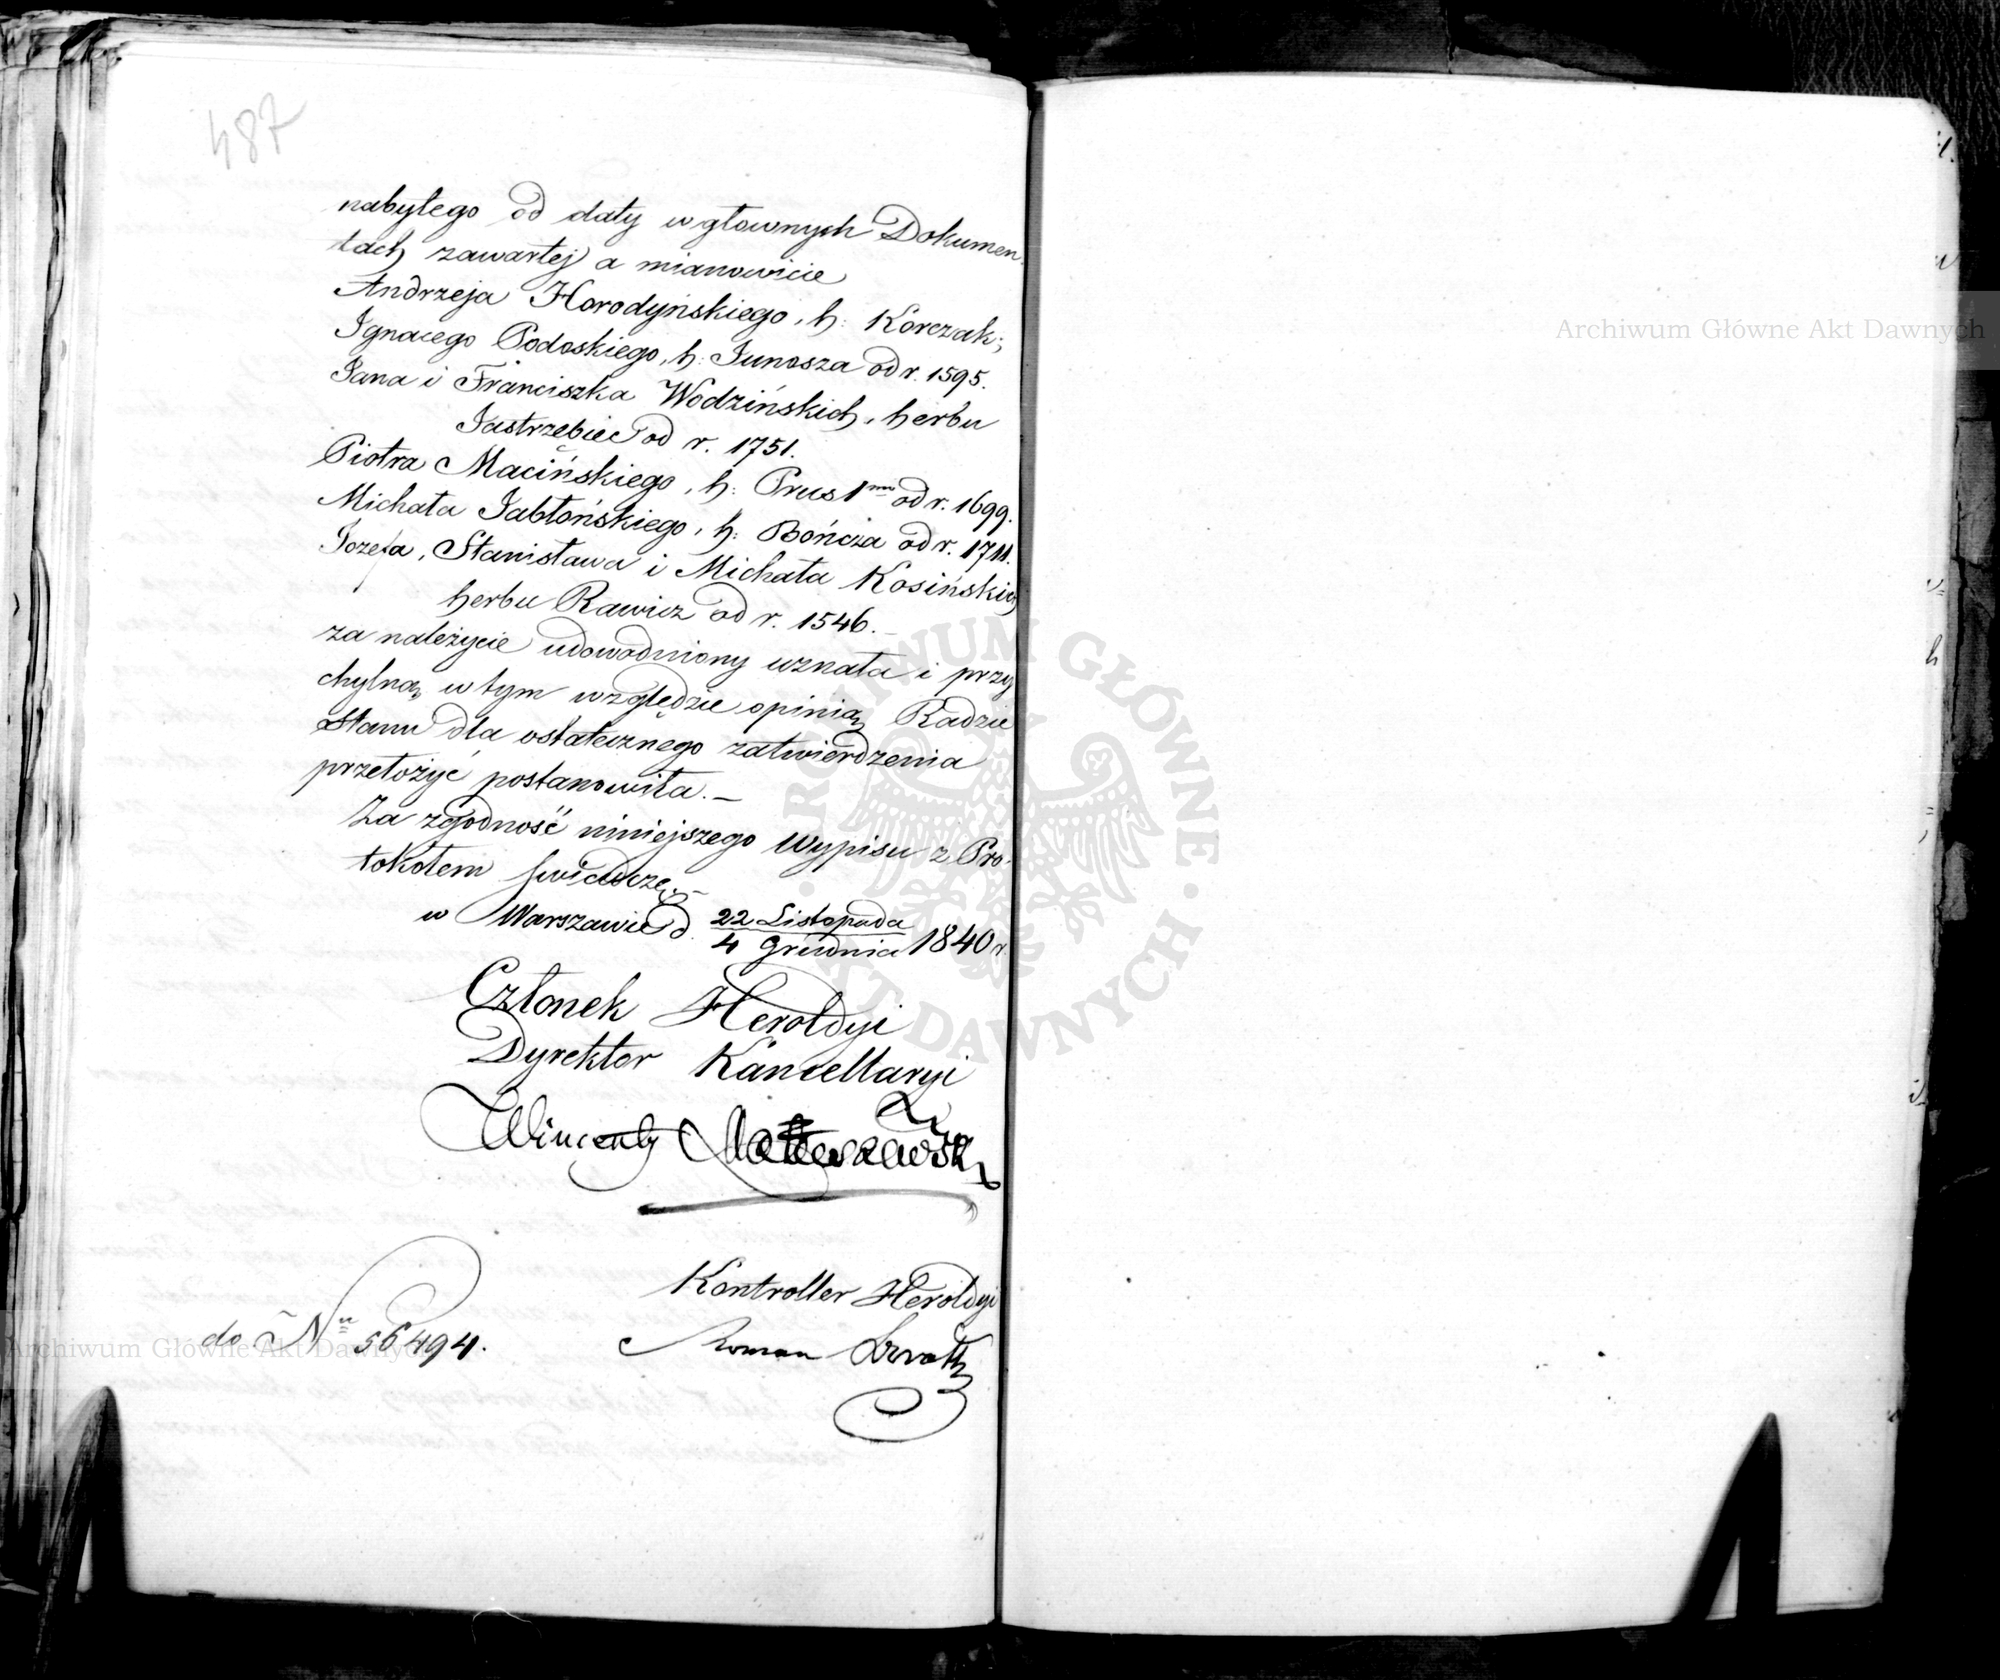 487
nabytego od daty w głownych Dokumen
tach zawartej a mianowicie
Andrzeja Horodyńskiego, h: Korczak;
Ignacego Podoskiego, h: Junosza od r. 1595.
Jana i Franciszka Wodzińskich, herbu
Jastrzębiec od r. 1751.
Piotra Macińskiego, h: Prus 1mo od r. 1699.
Michała Jabłońskiego, h: Bończa od r. 1711.
Jozefa, Stanisława i Michała Kosińskich
herbu Rawicz od r. 1546.
za należycie udowodniony uznała i przy
chylną w tym względzie opinią Radzie
Stanu dla ostatecznego zatwierdzenia
przełożyć postanowiła.—
Za zgodność niniejszego Wypisu z Pro-
tokołem świadczę.—
w Warszawie d. 22 Listopada
4 Grudnia 1840 r.
Członek Heroldyi
Dyrektor Kancellaryi
Wincenty
Kontroller Heroldyi
Roman
do Nu 56494.
Archiwum Główne Akt Dawnych
Archiwum Główne Akt Dawnych
ARCHIWUM GŁÓWNE AKT DAWNYCH